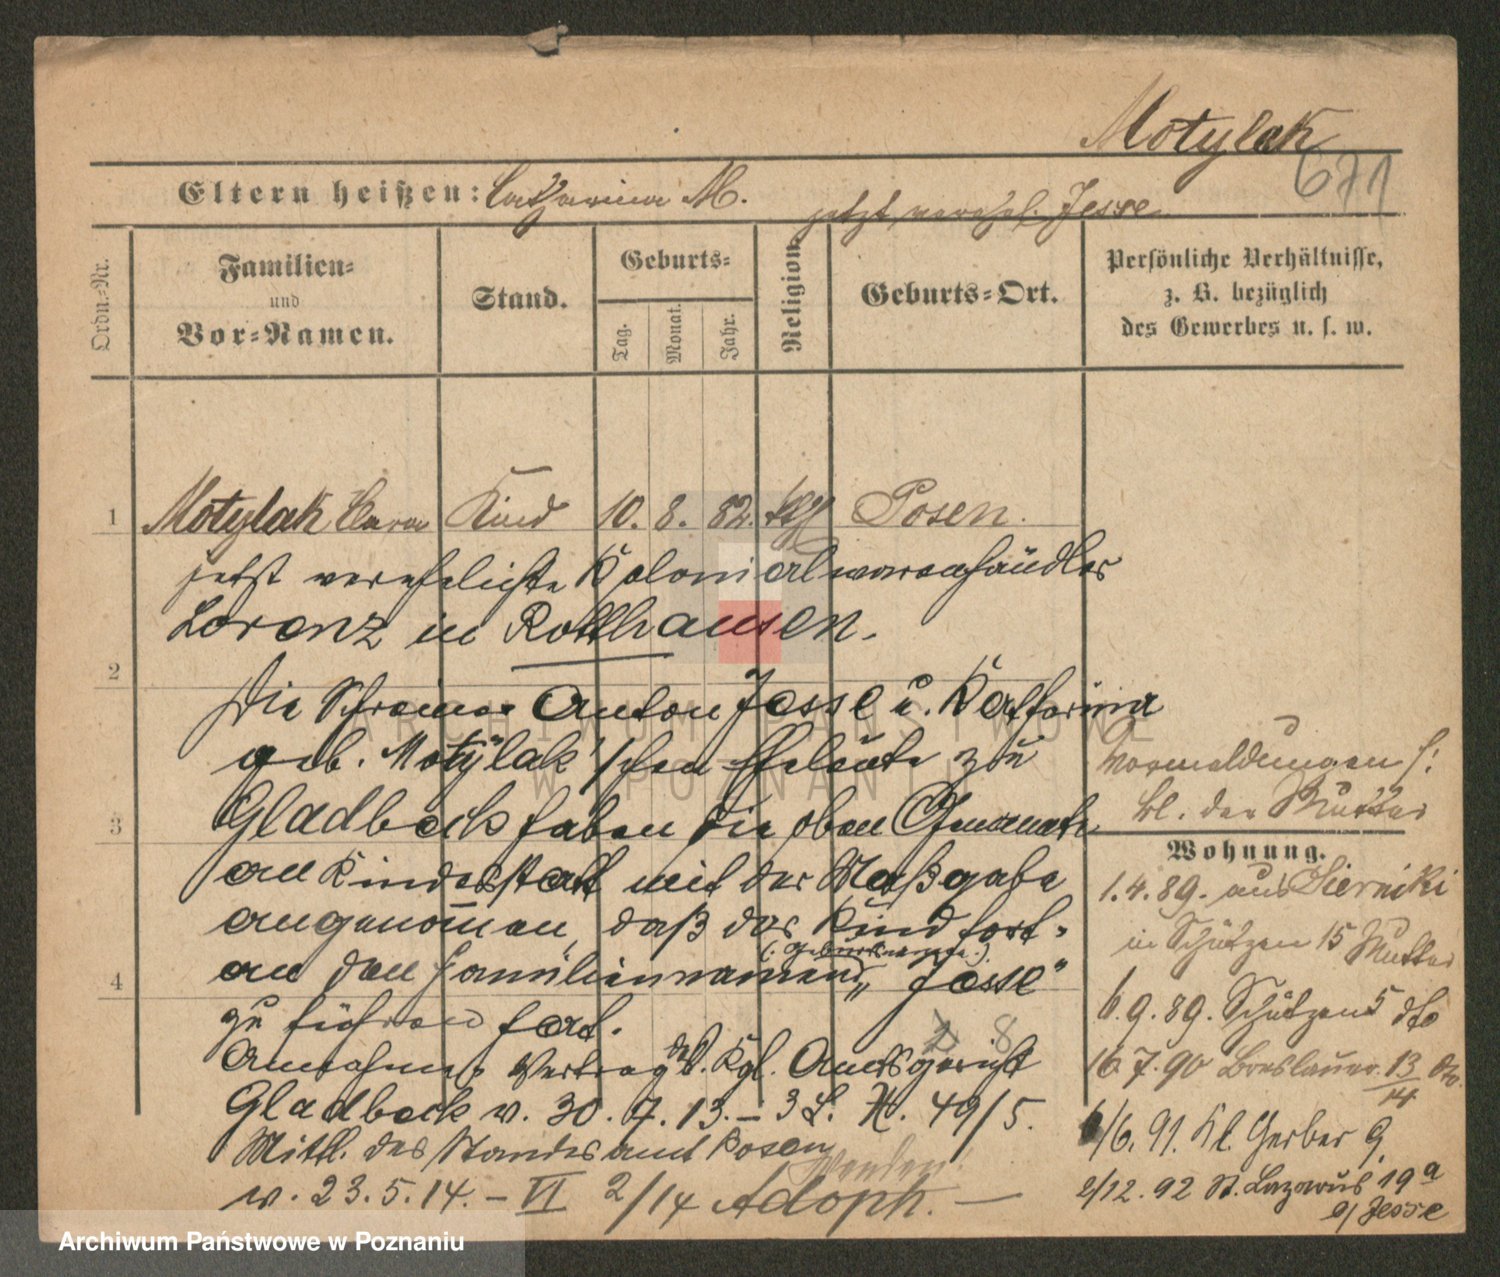 Motylak
671
Eltern heißen: Catharina M. jetzt verehel. Jesse
Ordn.-Nr.
Familien-
und
Vor-Namen.
Stand.
Geburts-
Tag.
Monat.
Jahr.
Religion.
Geburts-Ort.
Persönliche Verhältnisse,
z. B. bezüglich
des Gewerbes u. s. w.
1 Motylak Clara Kind 10. 8. 82. kth Posen.
jetzt verehelichte Kolonialwarenhändler
Lorenz in Rotthausen.
2
Die Schreiner Anton Jesse u. Katharina
geb. Motylak'schen Eheleute zu
3 Gladbeck haben die oben Genannte
an Kindesstatt mit der Maßgabe
angenommen, daß das Kind fort-
(: Geburtsname :)
4 an den Familiennamen „Jesse"
zu führen hat.
8
Annahme-Vertrag d. d. Kgl. Amtsgericht
Gladbeck v. 30. 7. 13. – 3 L. H. 49/5.
Mittl. des Standesamt Posen
v. 23. 5. 14. – VI 2/14 Adoph. —
Wenden!
Vormeldungen s:
bl. der Mutter
Wohnung.
1. 4. 89. aus Sierniki
in Schützen 15 Mutter
6. 9. 89. Schützen 5 dto
16. 7. 90 Breslauer 13/14 dto.
6/6. 91. Kl. Gerber 9.
2/12. 92 St. Lazarus 19a
b/ Jesse
ARCHIWUM PAŃSTWOWE
W POZNANIU
Archiwum Państwowe w Poznaniu